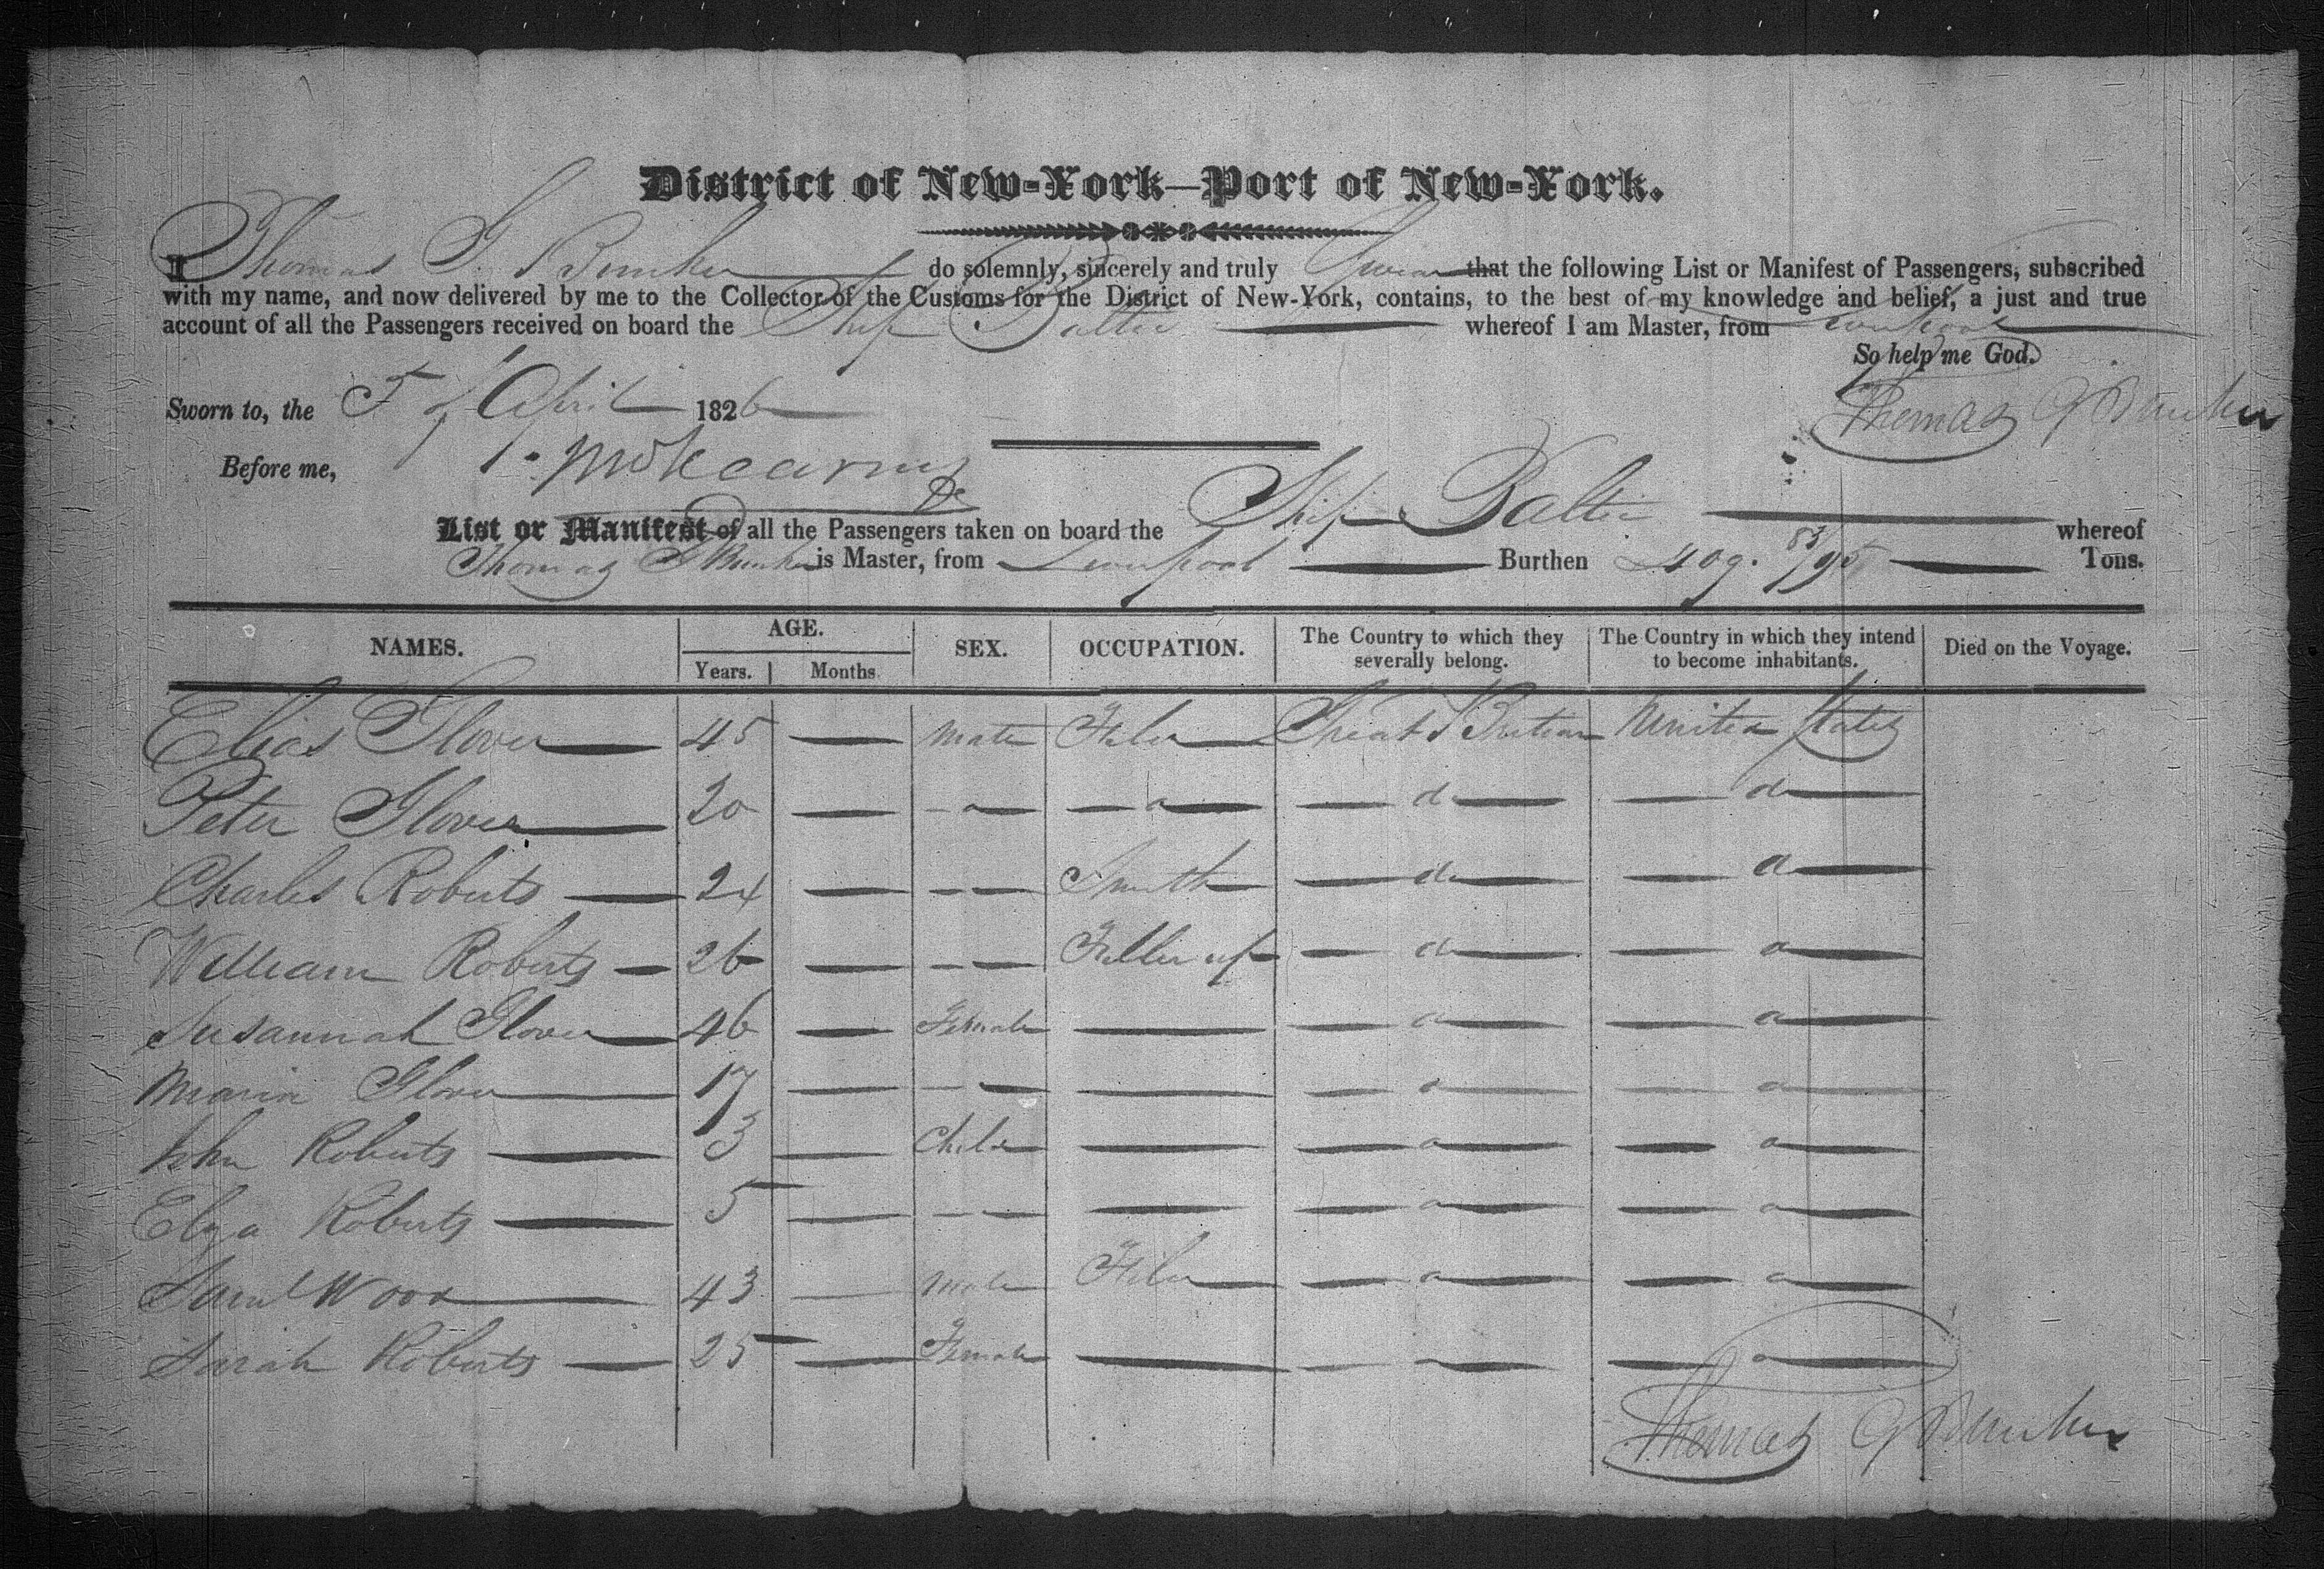 District of New-York—Port of New-York.
I Thomas G Bunker do solemnly, sincerely and truly Swear that the following List or Manifest of Passengers, subscribed
with my name, and now delivered by me to the Collector of the Customs for the District of New-York, contains, to the best of my knowledge and belief, a just and true
account of all the Passengers received on board the Ship Baltic whereof I am Master, from Liverpool
So help me God.
Sworn to, the 5 of April 1826 Thomas G Bunker
Before me,
List or Manifest of all the Passengers taken on board the Ship Baltic whereof
Thomas G Bunker is Master, from Liverpool Burthen 409. 83/95 Tons.
NAMES. AGE. Years. Months. SEX. OCCUPATION. The Country to which they severally belong. The Country in which they intend to become inhabitants. Died on the Voyage.
Elias Glover 45 Male Filer Great Britain United States
Peter Glover 20 — d — d
Charles Roberts 24 Smith d d
William Roberts 26 Filler up d d
Susannah Glover 46 Female d d
Maria Glover 17 d d
John Roberts 3 Child d d
Eliza Roberts 5 d d
Saml Wood 43 Male Filer d d
Sarah Roberts 25 Female d
Thomas G Bunker